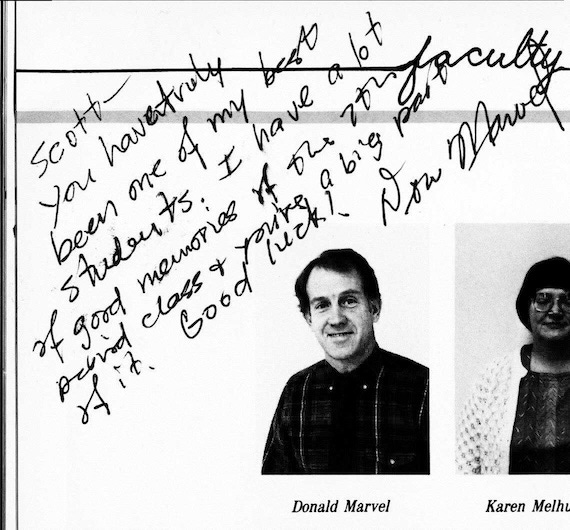 faculty
Scott—
You have truly
been one of my best
students. I have a lot
of good memories of the 7th
period class & you're a big part
of it. Good luck! Don Marvel
Donald Marvel
Karen Melhu